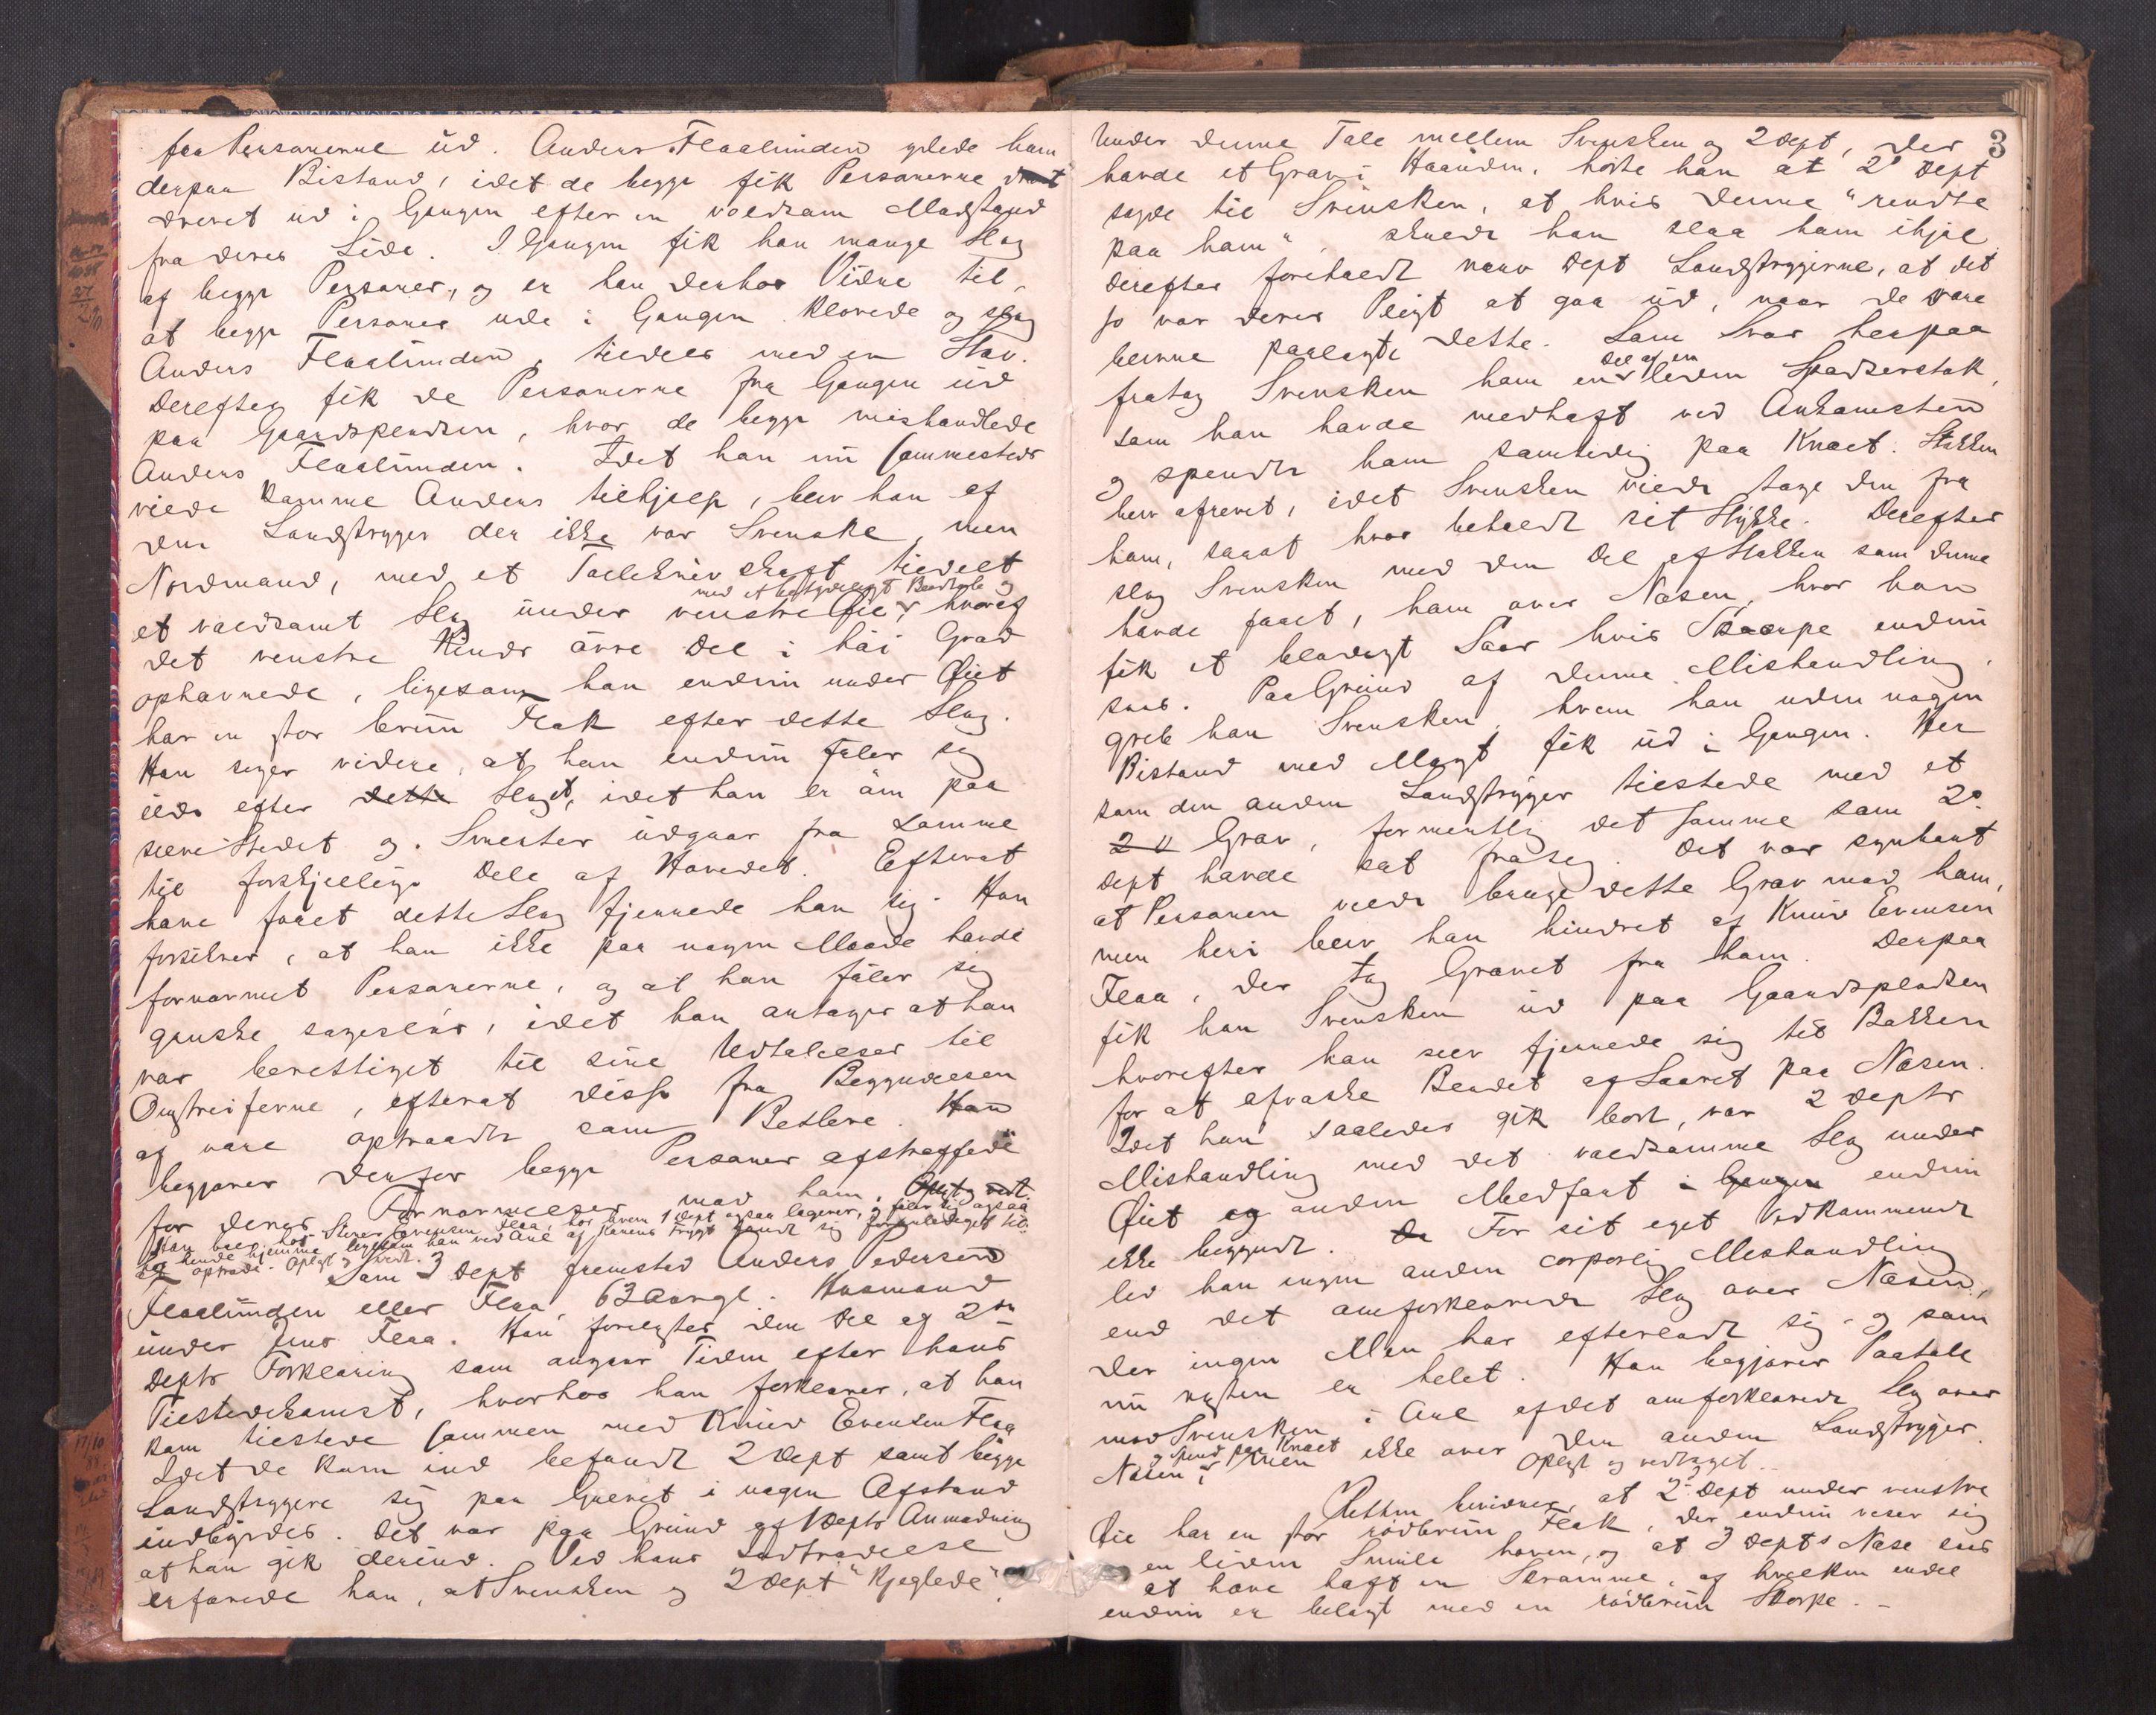 fra Personerne ud. Anders Flaalunden ydede ham
derpaa Bistand, idet de begge fik Personerne
drevet ud i Gangen efter en voldsom Modstand
fra deres Side. I Gangen fik han mange Slag
af begge Personer, og er han derhos Vidne til,
at begge Personer ude i Gangen klorede og slog
Anders Flaalunden, tildels med en Stav.
Derefter fik de Personerne fra Gangen ud
paa Gaardspladsen, hvor de begge mishandlede
Anders Flaalunden. Idet han nu sammesteds
vilde komme Anders tilhjælp, blev han af
den Landstryger der ikke var Svenske, men
Nordmand, med et Tolleknivskaft tildelt
med et betydeligt Blodtab og
et voldsomt Slag under venstre Øie, hvoraf
det venstre Kinds øvre Del i høi Grad
ophovnede, ligesom han endnu under Øiet
har en stor brun Flek efter dette Slag.
Han siger videre, at han endnu føler sig
ilde efter dette Slaget, idet han er øm paa
selve Stedet og Smerter udgaar fra samme
til forskjellige Dele af Hovedet. Efterat
have faaet dette Slag fjernede han sig. Han
forsikrer, at han ikke paa nogen Maade havde
fornærmet Personerne, og at han føler sig
ganske sagesløs, idet han antager at han
var berettiget til sine Udtalelser til
Omstreiferne, efterat disse fra Begyndelsen
af vare optraadte som Betlere. Han
begjærer derfor begge Personer afstraffede
for deres Fornærmelser mod ham. Oplyst og vedt.
Han boer hos Stener Evensen Flaa, hos hvem 1 Dept ogsaa logerer, og følte sig ogsaa
for hende hjemme ligesom han ved Anl af Konens Frygt fandt sig foranlediget til
at optræde. Oplyst og vedt.
Som 3 Dept fremstod Anders Pedersen
Flaalunden eller Flaa, 63 Aar gl. Husmand
under Jens Flaa. Han forelagtes den Del af 2den
Depts Forklaring som angaar Tiden efter hans
Tilstedekomst, hvorhos han forklarer, at han
kom tilstede sammen med Knud Evensen Flaa
Idet de kom ind befandt 2 Dept samt begge
Landstrygere sig paa Gulvet i nogen Afstand
indbyrdes. Det var paa Grund af 1 Depts Anmodning
at han gik derind. Ved hans Indtrædelse
erfarede han, at Svensken og 2 Dept "kjeglede".
3
Under denne Tale mellem Svensken og 2 Dept, der
havde et Grev i Haanden, hørte han at 2den Dept
sagde til Svensken, at hvis denne "rendte
paa ham", skulde han slaa ham ihjel
derefter foreholdt nærv Dept Landstrygerne, at det
jo var deres Pligt at gaa ud, naar de vare
blevne paalagte dette. Som Svar herpaa
del af en
fratog Svensken ham en liden Spadserstok,
som han havde medhaft ved Ankomsten
og spendte ham samtidig paa Knæet. Stokken
blev afrevet, idet Svensken vilde tage den fra
ham, saaat hver beholdt sit Stykke. Derefter
slog Svensken med den Del af Stokken som denne
havde faaet, ham over Næsen, hvor han
fik et blodigt Saar hvis Skorpe endnu
sees. Paa Grund af denne Mishandling
greb han Svensken, hvem han uden nogen
Bistand med Magt fik ud i Gangen. Her
kom den anden Landstryger tilstede med et
2 Grev, formentlig det samme som 2den
Dept havde sat fra sig. Det var synbart
at Personen vilde bruge dette Grev mod ham,
men heri blev han hindret af Knud Evensen
Flaa, der tog Grevet fra ham. Derpaa
fik han Svensken ud paa Gaardspladsen
hvorefter han selv fjernede sig til Bækken
for at afvaske Blodet af Saaret paa Næsen.
Idet han saaledes gik bort, var 2 Depts
Mishandling med det voldsomme Slag under
Øiet og anden Medfart i Gangen endnu
ikke begyndt. For sit eget Vedkommende
led han ingen anden corporlig Mishandling
end det omforklarede Slag over Næsen,
der ingen Men har efterladt sig og som
nu næsten er helet. Han begjærer Paatale
mod Svensken i Anl af det omforklarede Slag over
og Spend paa Knæet
Næsen, men ikke over den anden Landstryger.
Oplyst og vedtaget.
Retten bevidner, at 2den Dept under venstre
Øie har en stor rødbrun Flek, der endnu viser sig
en liden Smule hoven, og at 3 Depts Næse sees
at have haft en Skramme, af hvilken endel
endnu er belagt med en rødbrun Skorpe.